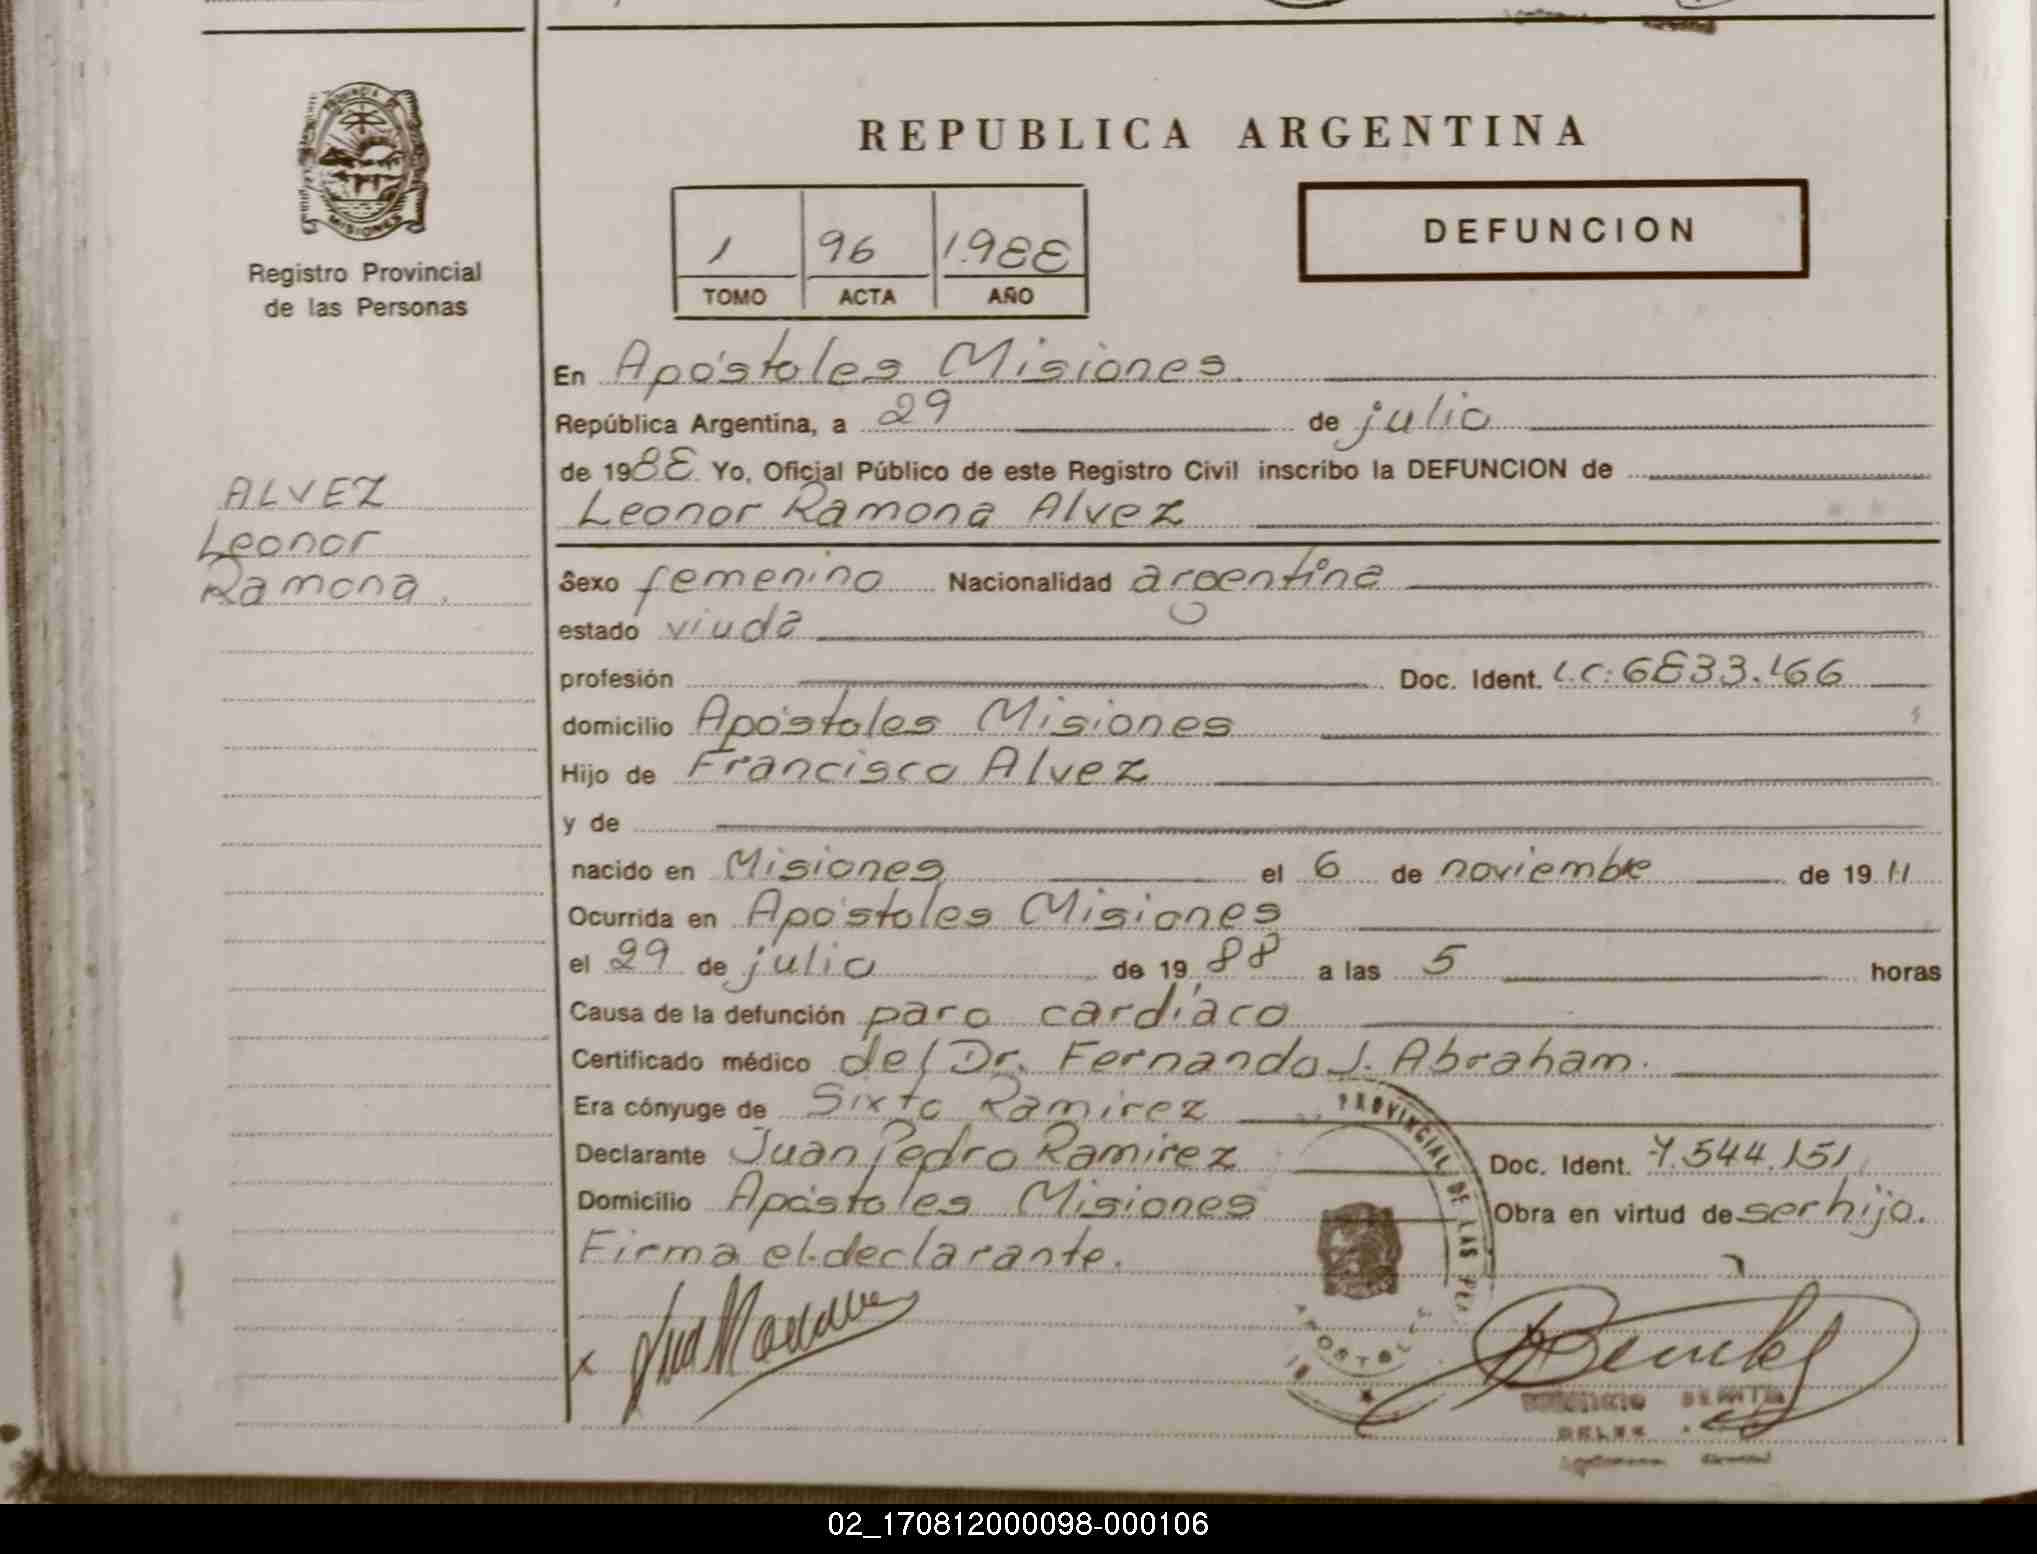 PROVINCIA DE
MISIONES
Registro Provincial
de las Personas
ALVEZ
Leonor
Ramona.
REPUBLICA ARGENTINA
1 96 1.988
TOMO ACTA AÑO
DEFUNCION
En Apóstoles Misiones
República Argentina, a 29 de julio
de 1988 Yo, Oficial Público de este Registro Civil inscribo la DEFUNCION de
Leonor Ramona Alvez
Sexo femenino Nacionalidad argentina
estado viuda
profesión Doc. Ident. L.C: 6833.166
domicilio Apóstoles Misiones
Hijo de Francisco Alvez
y de
nacido en Misiones el 6 de noviembre de 1911
Ocurrida en Apóstoles Misiones
el 29 de julio de 1988 a las 5 horas
Causa de la defunción paro cardíaco
Certificado médico del Dr. Fernando J. Abraham.
Era cónyuge de Sixto Ramirez
Declarante Juan Pedro Ramirez Doc. Ident. 7.544.151
Domicilio Apóstoles Misiones Obra en virtud de ser hijo.
Firma el declarante.
x
PROVINCIAL DE LAS
APOSTOLES
02_170812000098-000106